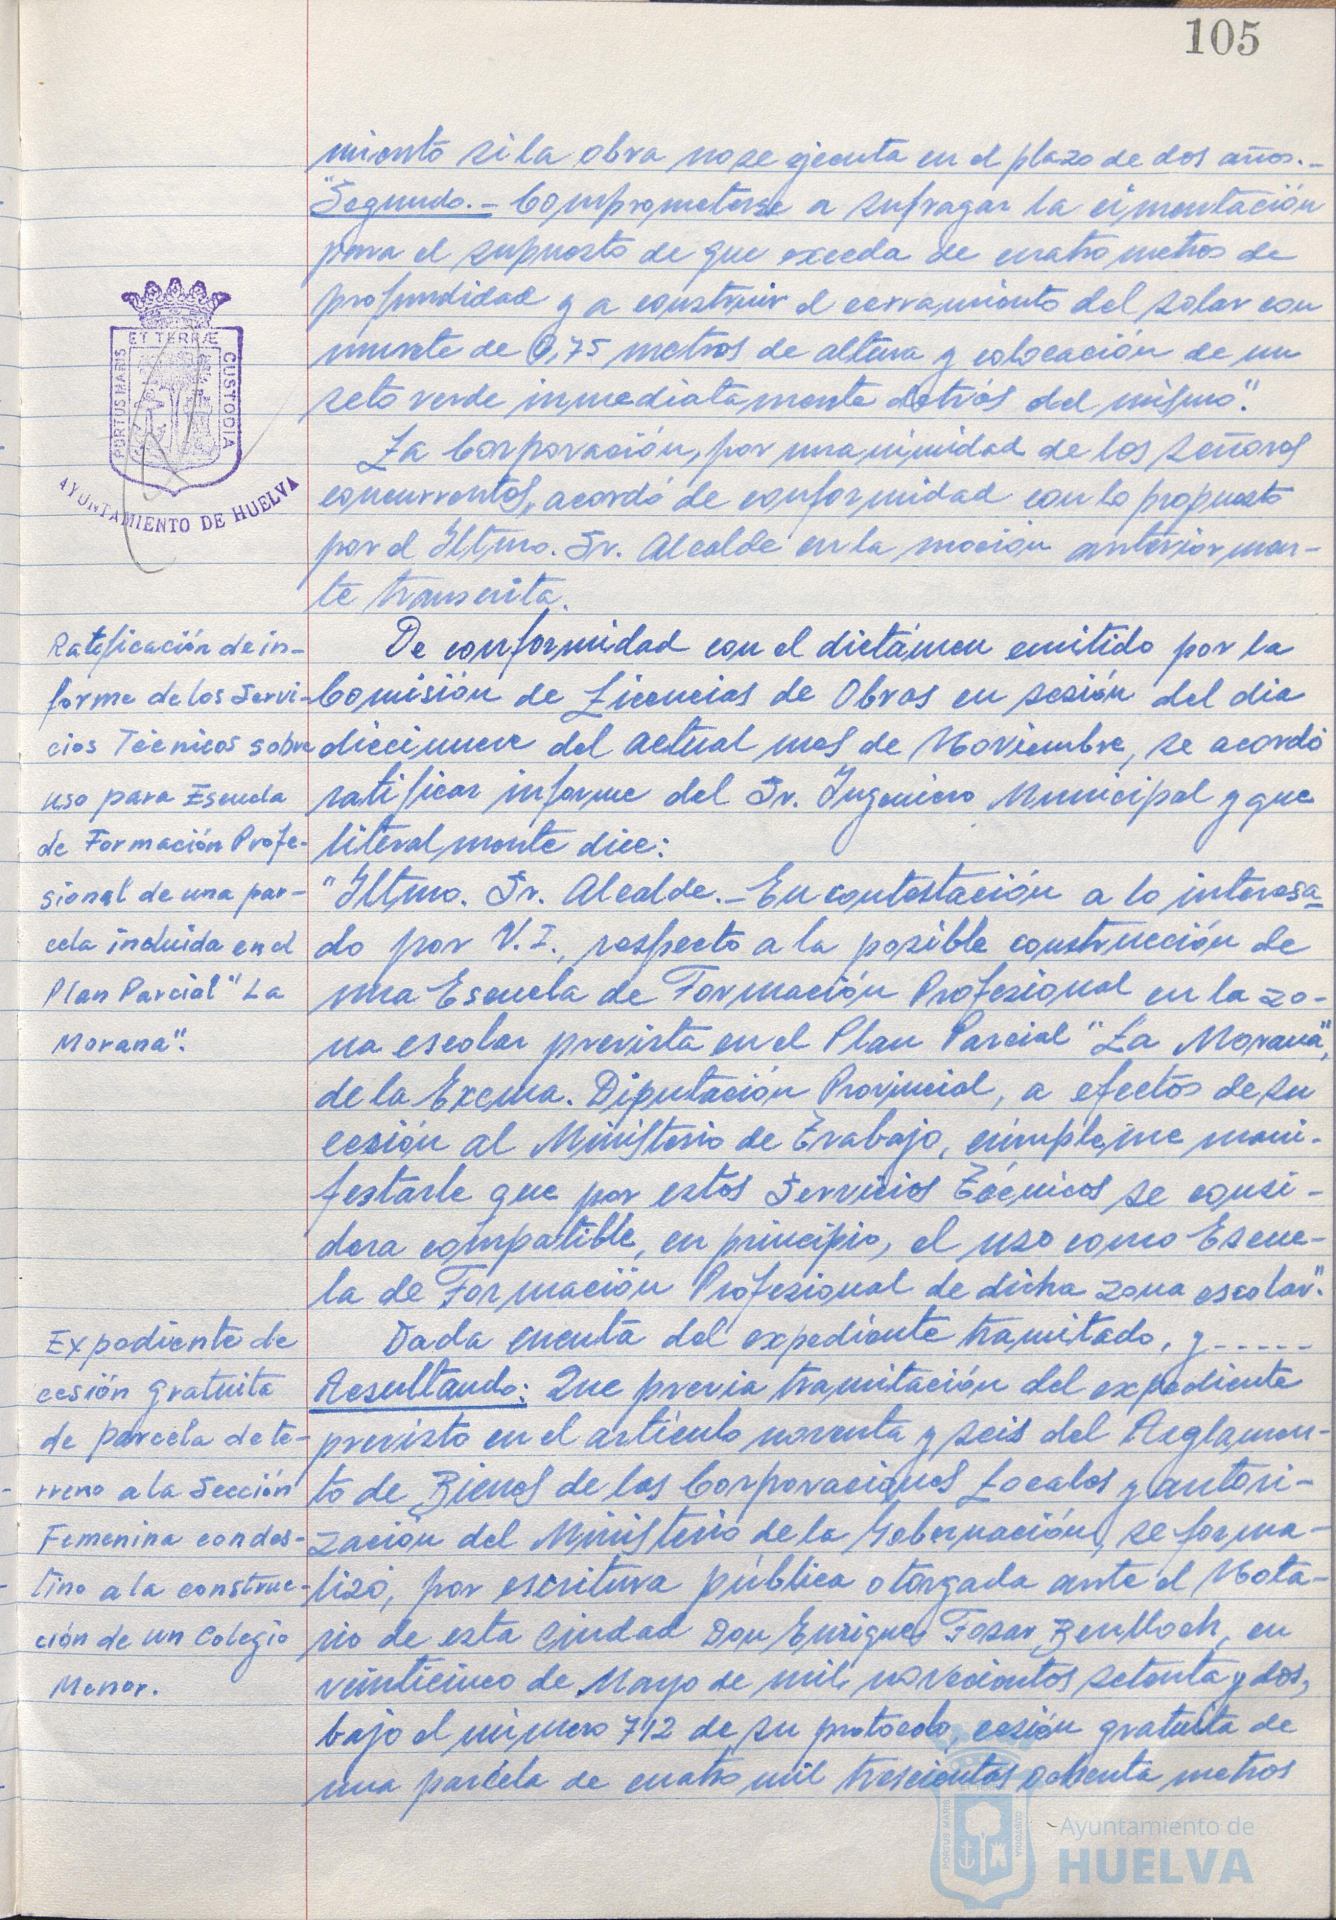 105
miento si la obra no se ejecuta en el plazo de dos años.-
"Segundo.- Comprometerse a sufragar la cimentación
para el supuesto de que exceda de cuatro metros de
profundidad y a construir el cerramiento del solar con
murete de 0,75 metros de altura y colocación de un
seto verde inmediatamente detrás del mismo".
La Corporación, por unanimidad de los señores
concurrentes, acordó de conformidad con lo propuesto
por el Iltmo. Sr. Alcalde en la moción anteriormen-
te transcrita.
ET TERRÆ
PORTUS MARIS
CUSTODIA
AYUNTAMIENTO DE HUELVA
Ratificación de in-
forme de los Servi-
cios Técnicos sobre
uso para Escuela
de Formación Profe-
sional de una par-
cela incluida en el
Plan Parcial "La
Morana".
De conformidad con el dictámen emitido por la
Comisión de Licencias de Obras en sesión del dia
diecinueve del actual mes de Noviembre, se acordó
ratificar informe del Sr. Ingeniero Municipal y que
literalmente dice:
"Iltmo. Sr. Alcalde.- En contestación a lo interesa-
do por V.I., respecto a la posible construcción de
una Escuela de Formación Profesional en la zo-
na escolar prevista en el Plan Parcial "La Morana",
de la Excma. Diputación Provincial, a efectos de su
cesión al Ministerio de Trabajo, cúmpleme mani-
festarle que por estos Servicios Técnicos se consi-
dera compatible, en principio, el uso como Escue-
la de Formación Profesional de dicha zona escolar".
Expediente de
cesión gratuita
de parcela de te-
rreno a la Sección
Femenina con des-
tino a la construc-
ción de un Colegio
Menor.
Dada cuenta del expediente tramitado, y-----
Resultando: Que previa tramitación del expediente
previsto en el artículo noventa y seis del Reglamen-
to de Bienes de las Corporaciones Locales y autori-
zación del Ministerio de la Gobernación, se forma-
lizó, por escritura pública otorgada ante el Nota-
rio de esta Ciudad Don Enrique Fosar Benlloch, en
veinticinco de Mayo de mil novecientos setenta y dos,
bajo el número 712 de su protocolo, cesión gratuita de
una parcela de cuatro mil trescientos ochenta metros
PORTUS MARIS
CUSTODIA
Ayuntamiento de
HUELVA